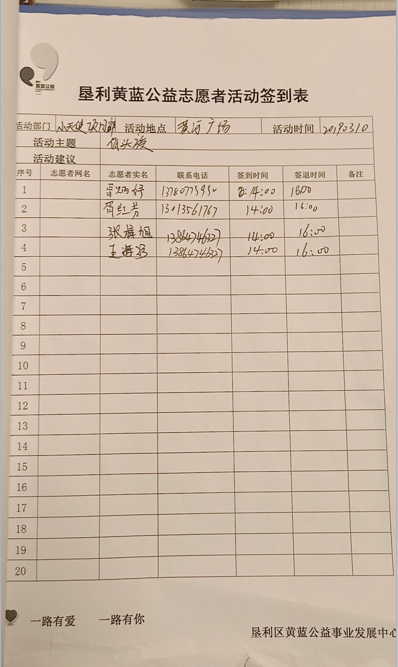 黄蓝公益
垦利黄蓝公益志愿者活动签到表
活动部门 小天使项目部 活动地点 黄河广场 活动时间 20190310
活动主题
活动建议
序号 志愿者网名 志愿者实名 联系电话 签到时间 签退时间 备注
1 14:00 1600
2 14:00 16:00
3 张梓旭 13864746327 14:00 16:00
4 13864746327 14:00 16:00
5
6
7
8
9
10
11
12
13
14
15
16
17
18
19
20
一路有爱 一路有你
垦利区黄蓝公益事业发展中心